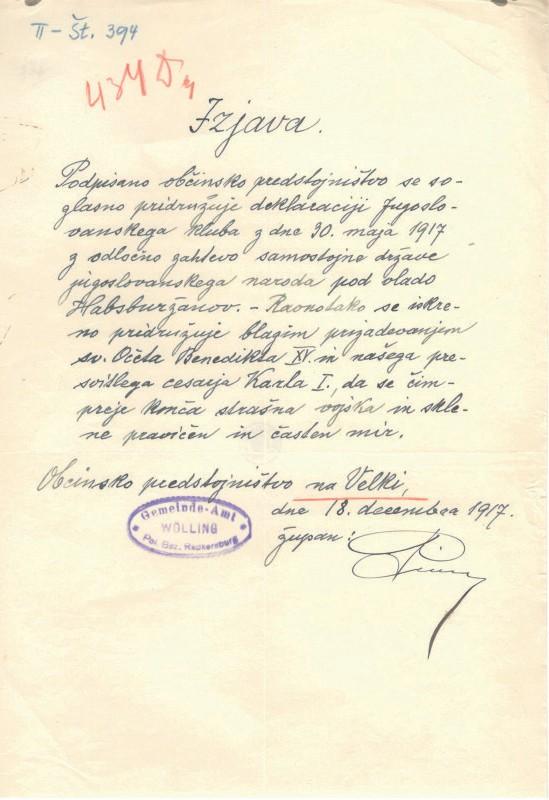 II - Št. 394
434
Izjava.
Podpisano občinsko predstojništvo se so-
glasno pridružuje deklaraciji Jugoslo-
vanskega kluba z dne 30. maja 1917
z odločno zahtevo samostojne države
jugoslovanskega naroda pod vlado
Habsburžanov. - Ravnotako se iskre-
no pridružuje blagim prizadevanjem
sv. Očeta Benedikta XV. in našega pre-
svitlega cesarja Karla I., da se čim-
preje konča strašna vojska in skle-
ne pravičen in časten mir.
Občinsko predstojništvo na Velki,
dne 18. decembra 1917.
župan:
Gemeinde-Amt
WÖLLING
Pol. Bez. Radkersburg